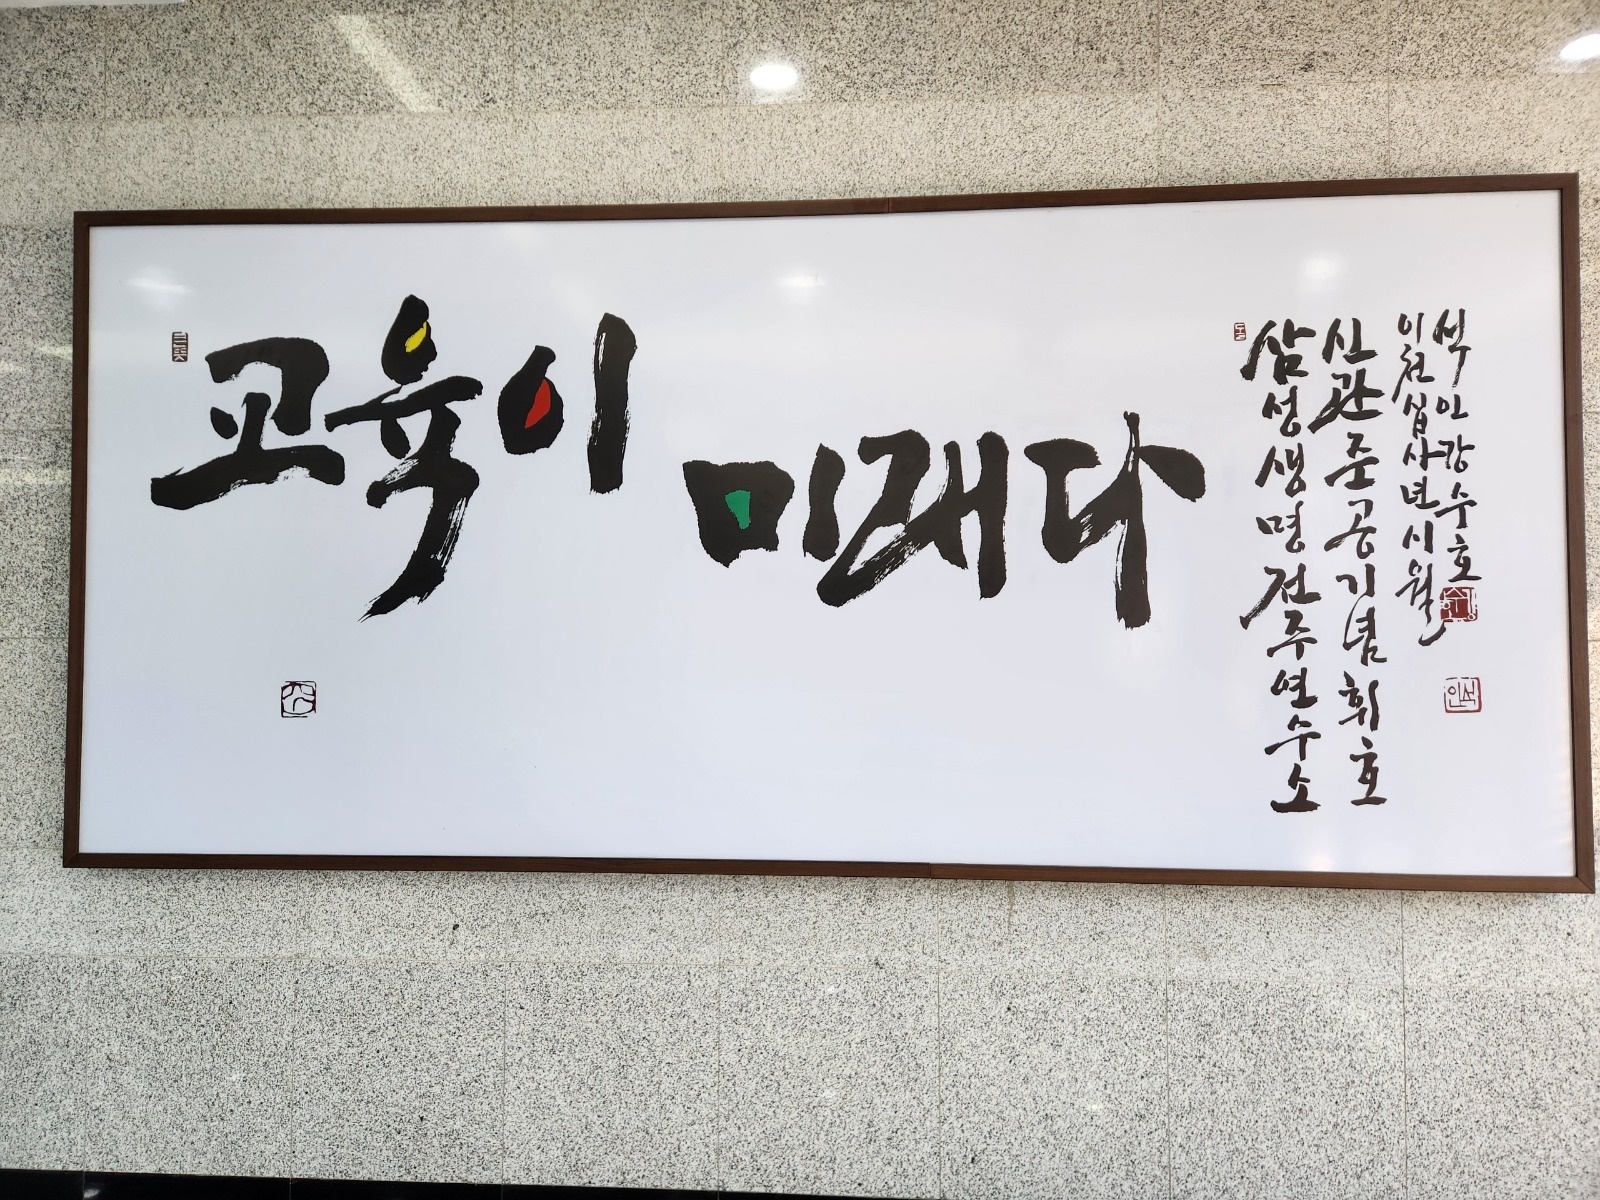 교육이
미래다
삼성생명전주연수소
신관준공기념휘호
이천십사년시월
석인강수호
석인